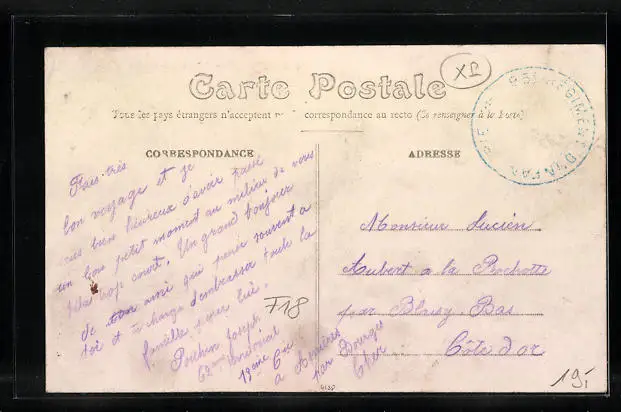 XP
Carte Postale
Tous les pays étrangers n'acceptent correspondance au recto (Se renseigner à la Poste)
95e REGIMENT D'INFAN
CORRESPONDANCE
ADRESSE
Fais très
bon voyage et je
suis bien heureux d'avoir passé
un bon petit moment au milieu de vous
hélas trop court. Un grand bonjour
de ton ami qui pense souvent à
toi et à charge d'embrasser toute la
famille pour lui.
Joseph
62eme territorial
19eme Cie
à
par Bourges
Cher
F18
Monsieur Lucien
Aubert a la Rochotte
par Blaisy Bas
Côte d'or
19,-